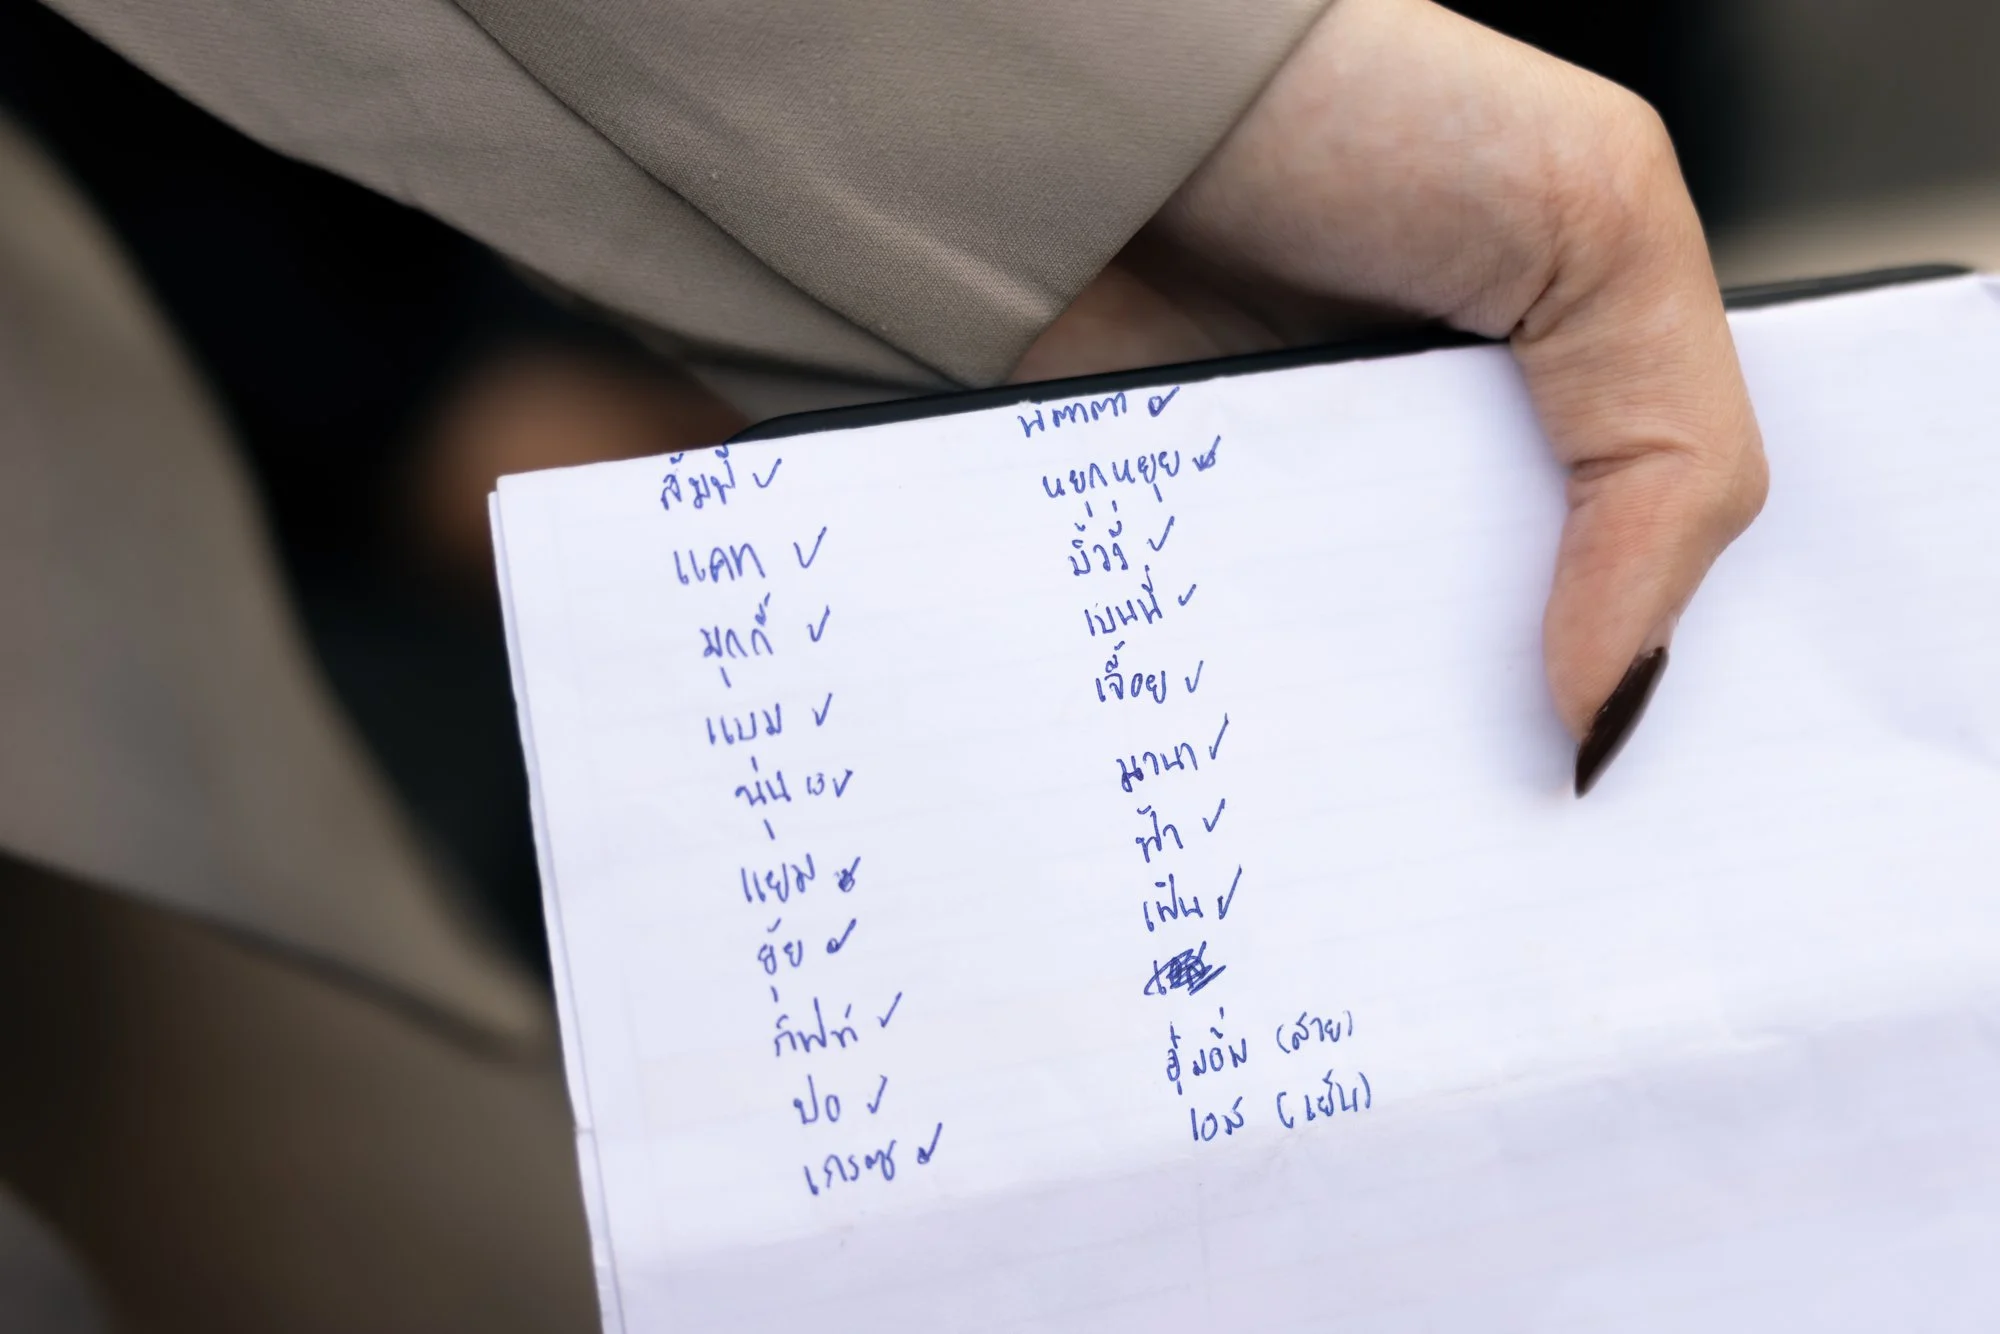 ส้มพี้ ✓
แคท ✓
มุกกี้ ✓
แบม ✓
นุ่น ✓
แยม ✓
ยุ้ย ✓
ก๊ฟท์ ✓
ปอ ✓
เกรซ ✓
พี่ตาตา ✓
หยกหยุย ✓
บิ๋วบิ๋ว ✓
เบนนี่ ✓
เจื้อย ✓
นานา ✓
ฟ้า ✓
เฟิน ✓
อุ๋มอิ๋ม (สาย)
เอส (เย็น)